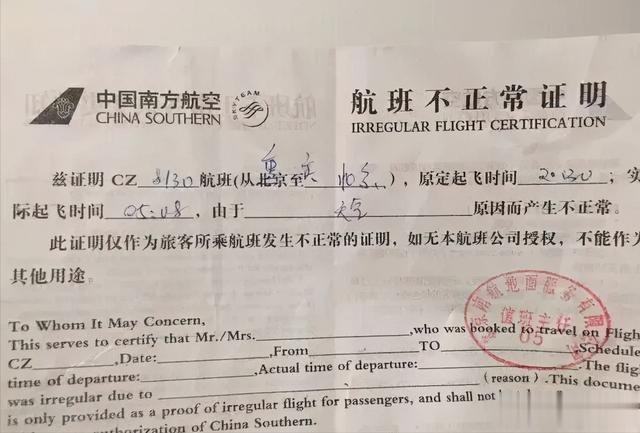 中国南方航空
CHINA SOUTHERN
SKYTEAM
航班不正常证明
IRREGULAR FLIGHT CERTIFICATION
兹证明 CZ 8130 航班(从北京至 ), 原定起飞时间 2030 ; 实
际起飞时间 05:08 , 由于 天气 原因而产生不正常。
此证明仅作为旅客所乘航班发生不正常的证明, 如无本航班公司授权, 不能作为
其他用途。
南航地面服务有限公司
值班主任
05
To Whom It May Concern,
This serves to certify that Mr./Mrs. ,who was booked to travel on Flight
CZ ,Date: ,From TO ,Schedule
time of departure: ,Actual time of departure: .The flight
was irregular due to (reason) .This docume
is only provided as a proof of irregular flight for passengers, and shall not
authorization of China Southern.